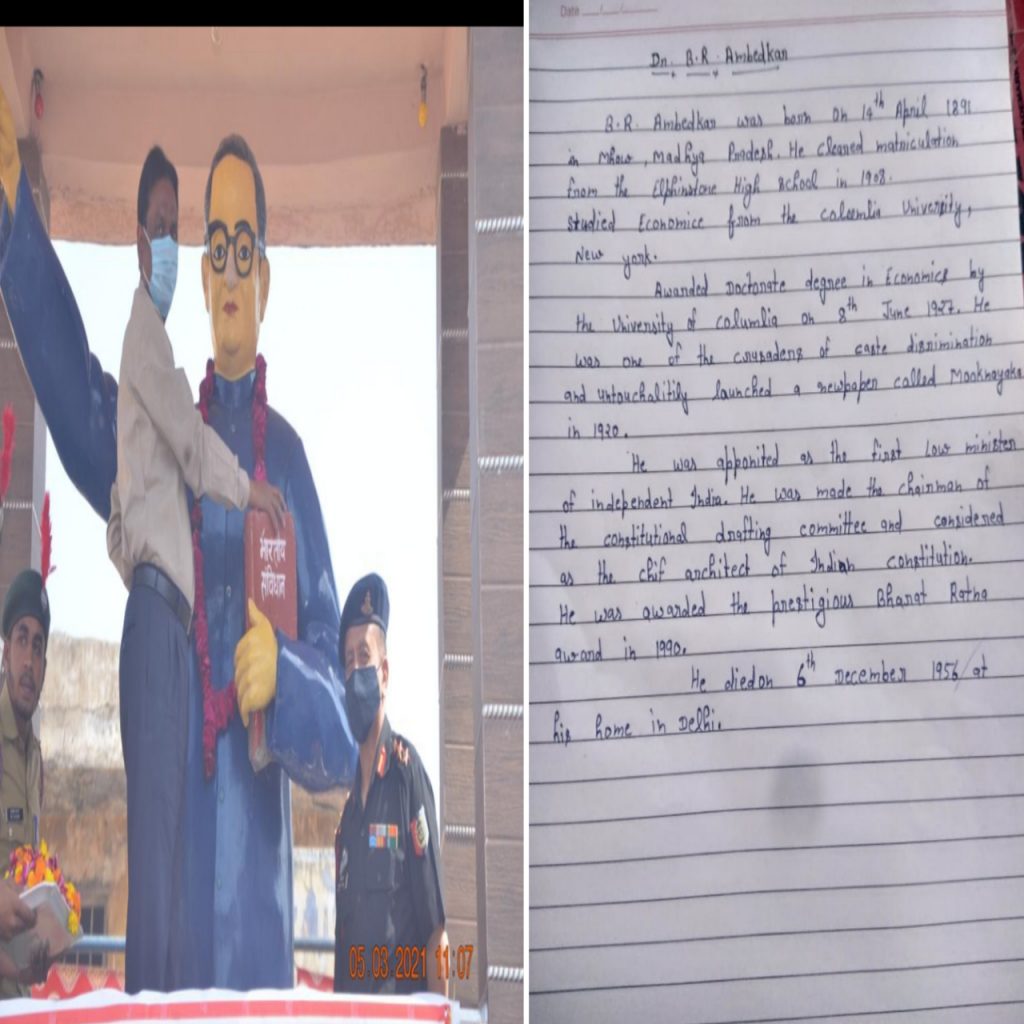 भारतीय
संविधान
05.03.2021 11:07
Date
Dr. B.R. Ambedkar
B.R. Ambedkar was born on 14th April 1891
in Mhow, Madhya Pradesh. He cleared matriculation
from the Elphinstone High School in 1908.
Studied Economics from the columbia University,
New york.
Awarded Doctorate degree in Economics by
the University of columbia on 8th June 1927. He
was one of the crusaders of caste disrimination
and untouchalitily launched a newpaper called Mooknayaka
in 1920.
He was apponited as the first Low minister
of independent India. He was made the chairman of
the constitutional drafting committee and considered
as the chif architect of Indian constitution.
He was awarded the prestigious Bharat Ratna
award in 1990.
He diedon 6th December 1956 at
his home in Delhi.